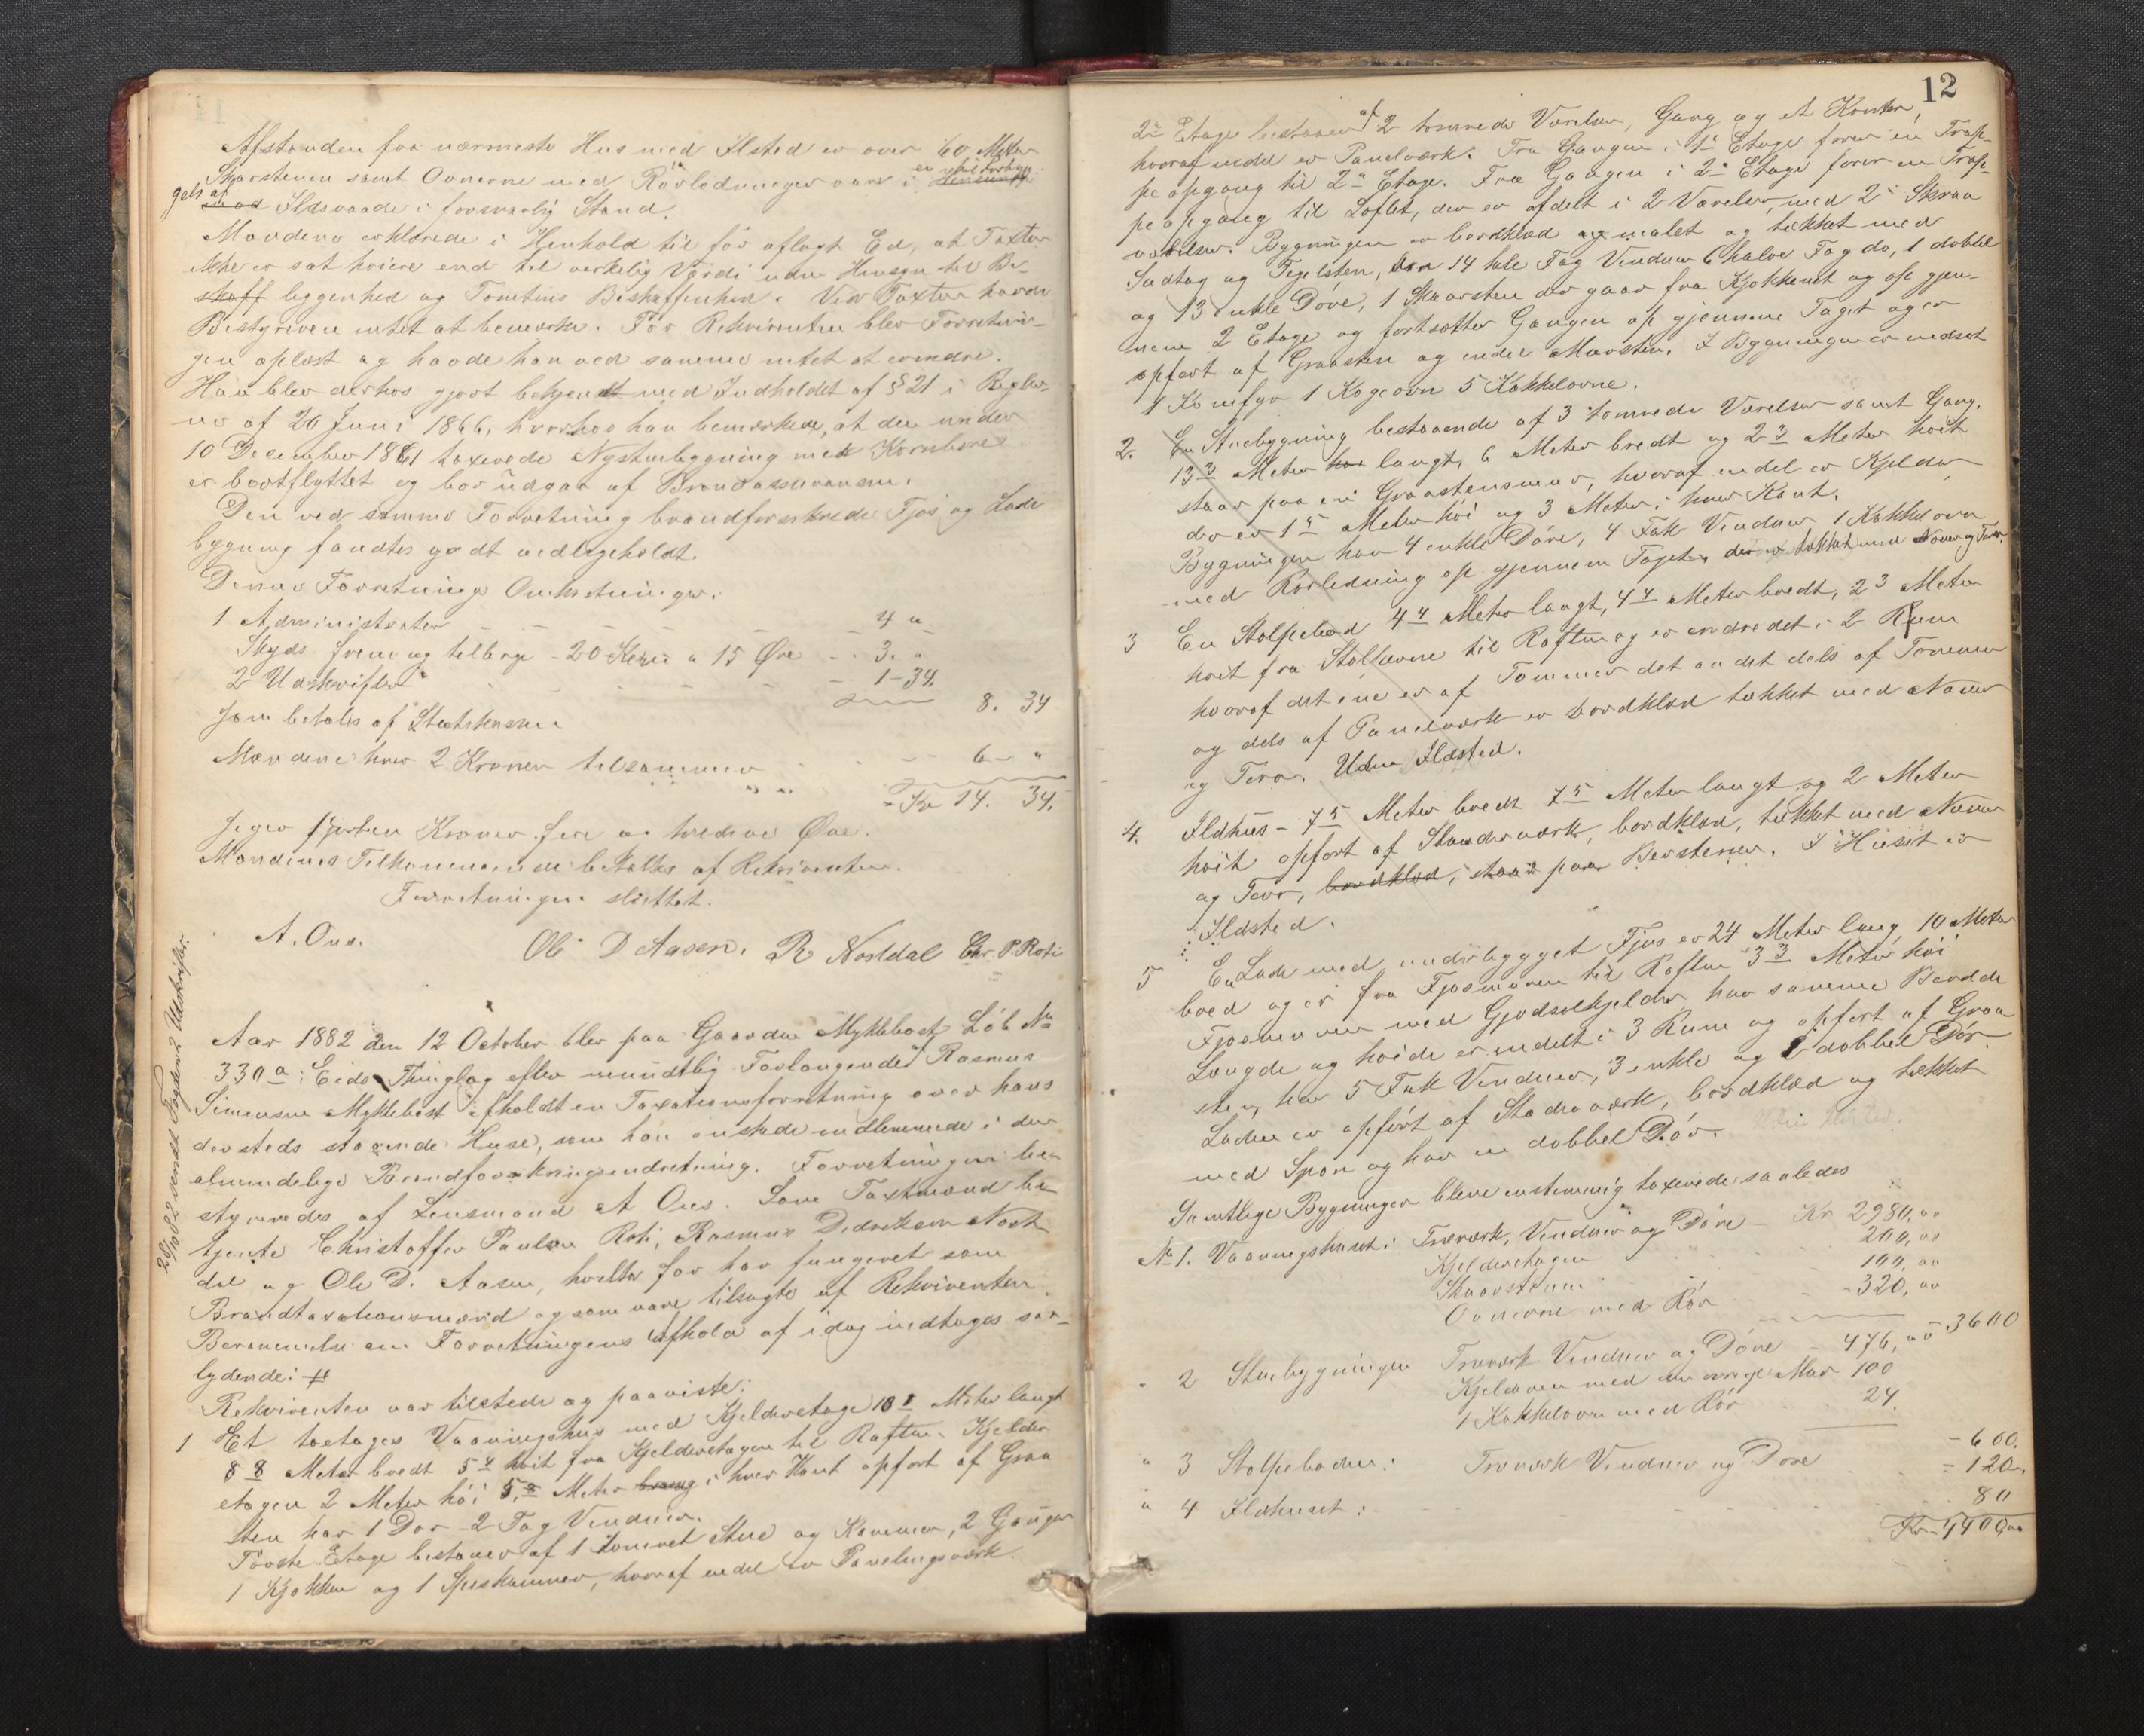 Afstanden fra nærmeste Hus med Ilsted er over 60 Meter
Skorstenen samt Ovnerne med Rörledninger vare i
af Ildsvaade i forsvarlig Stand.
Mændene erklærede i Henhold til før aflagt Ed, at Taxten
ikke er sat höiere end til verkelig Værdi uden Hensyn til Be-
skaff leggenhed og Tomtens Beskaffenhed. Ved Taxten havde
Bestyreren intet at bemærke. For Rekvirenten blev Forretnin-
gen oplæst og havde han ved samme intet at erindre.
Han blev derhos gjort bekjendt med Indholdet af § 21 i Regler-
ne af 20 Juni 1866, hvorhos han bemærkede, at den under
10 December 1861 taxerede Nystuebygning med Kornbod
er bortflyttet og bör udgaa af Brandassurancen.
Den ved samme Forretning brandforsikrede Fjös og Lade
bygning fandtes godt vedligeholdt.
Denne Forretnings Omkostninger.
1 Administrator 4 "
Skyds frem og tilbage - 20 Kilm a 15 Øre 3. "
2 Udskrifter 1-34.
8. 34
som betales af Statskassen
Mændene hver 2 Kroner tilsammen 6 - "
Kr 14. 34.
siger fjorten Kroner fire og tredive Øre.
Mændenes Tilkommende betales af Rekvirenten.
Forretningen sluttet.
A. Ous. Ole D Aasen. R Nostdal Chr. P. Roti
Aar 1882 den 12 October blev paa Gaarden Myklebost Löb No
330a i Eids Thinglag efter mundtlig Forlangende Rasmus
Simensen Myklebost afholdt en Taxationsforretning over hans
dersteds staaende Huse, som han önskede indlemmede i den
almindelige Brandforsikringsindretning. Forretningen be-
styredes af Lensmand A Ous. Som Taxtmænd be-
tjente Christoffer Paulsen Roti, Rasmus Didriksen Nost
dal og Ole D. Aasen, hvilke för har fungeret som
Brandtaxationsmænd og som vare tilsagte af Rekvirenten.
Berammelse om Forretningens Afhold af idag indtages saa-
lydende:
Rekvirenten var tilstede og paaviste:
1 Et toetages Vaaningshus med Kjelderetage 10 Meter langt
8 8 Meter bredt 5 4 höit fra Kjelderetagen til Raften. Kjelder
etagen 2 Meter höi 5 Meter i hver Kant opfört af Graa
sten har 1 Dör 2 Fag Vinduer.
Förste Etage bestaaer af 1 tömret Stue og Kammer, 2 Gange
1 Kjökken og 1 Spiskammer, hvoraf endel er Panelingsværk.
2 Udskrifter.
12
2en Etage bestaaer af 2 tömrede Værelser, Gang og et Kontor,
hvoraf endel er Panelværk. Fra Gangen i 1e Etage förer en Trap-
pe opgang til 2en Etage. Fra Gangen i 2e Etage förer en Trap-
pe opgang til Loftet, der er afdelt i 2 Værelser, med 2 Skraa
værelser. Bygningen er bordklæd og malet og tækket med
Sadtag og Teglsten, har 14 hele Fag Vinduer 6 halve Fag do, 1 dobbel
og 13 enkle Döre, 1 Skorsten der gaar fra Kjökkenet og op gjen-
nem 2 Etage og fortsætter Gangen op gjennem Taget og er
opfört af Graasten og endel Mursten. I Bygningen er indsat
1 Komfyr 1 Kogeovn 5 Kakkelovne.
2. En Stuebygning bestaaende af 3 tömrede Værelser samt Gang.
13 Meter langt, 6 Meter bredt og 2 3 Meter höit
staar paa en Graastensmur, hvoraf endel er Kjelder
der er 1 5 Meter höi og 3 Meter i hver Kant.
Bygningen har 4 enkle Döre, 4 Fak Vinduer, 1 Kakkelovn
med Rörledning op gjennem Taget, der er tækket med Næver og Torv.
3 En Stolpebod 4 4 Meter langt, 4 4 Meter bredt, 2 3 Meter
höit fra Stolperne til Raften og er indredet i 2 Rum
hvoraf det ene er af Tömmer det andet dels af Tömmer
og dels af Panelværk er bordklæd tækket med Næver
og Torv. Uden Ildsted.
4. Ildhus - 7 5 Meter bredt 7 5 Meter langt og 2 Meter
höit opfört af Standværk, bordklæd, tækket med Næver
og Torv, bordklæd, staar paa. I Huset er
Ildsted.
5 En Lade med underbygget Fjös er 24 Meter lang, 10 Meter
bred og er fra Fjösmuren til Raften 3 3 Meter höi
Fjösmuren med Gjödselkjelder har samme Bredde
Længde og höide er indelt i 3 Rum og opfört af Graa
sten, har 5 Fak Vinduer, 3 enkle og 1 dobbel Dör.
Laden er opfört af Stavværk, bordklæd og tækket
med Spon og har en dobbel Dör.
Samtlige Bygninger bleve enstemmig taxerede saaledes
No 1. Vaaningshuset: Træværk, Vinduer og Döre - Kr 2980,00
Kjelderetagen 200,00
Skorstenen 100,00
Ovnerne med Rör - 320,00
3600
" 2 Stuebygningen Træværk Vinduer og Döre - 476,00
Kjelderen med den övrige Mur 100
1 Kakkelovn med Rör 24.
- 600.
" 3 Stolpeboden: Træværk Vinduer og Döre - 120.
" 4 Ildhuset: 80
Kr 4400,00